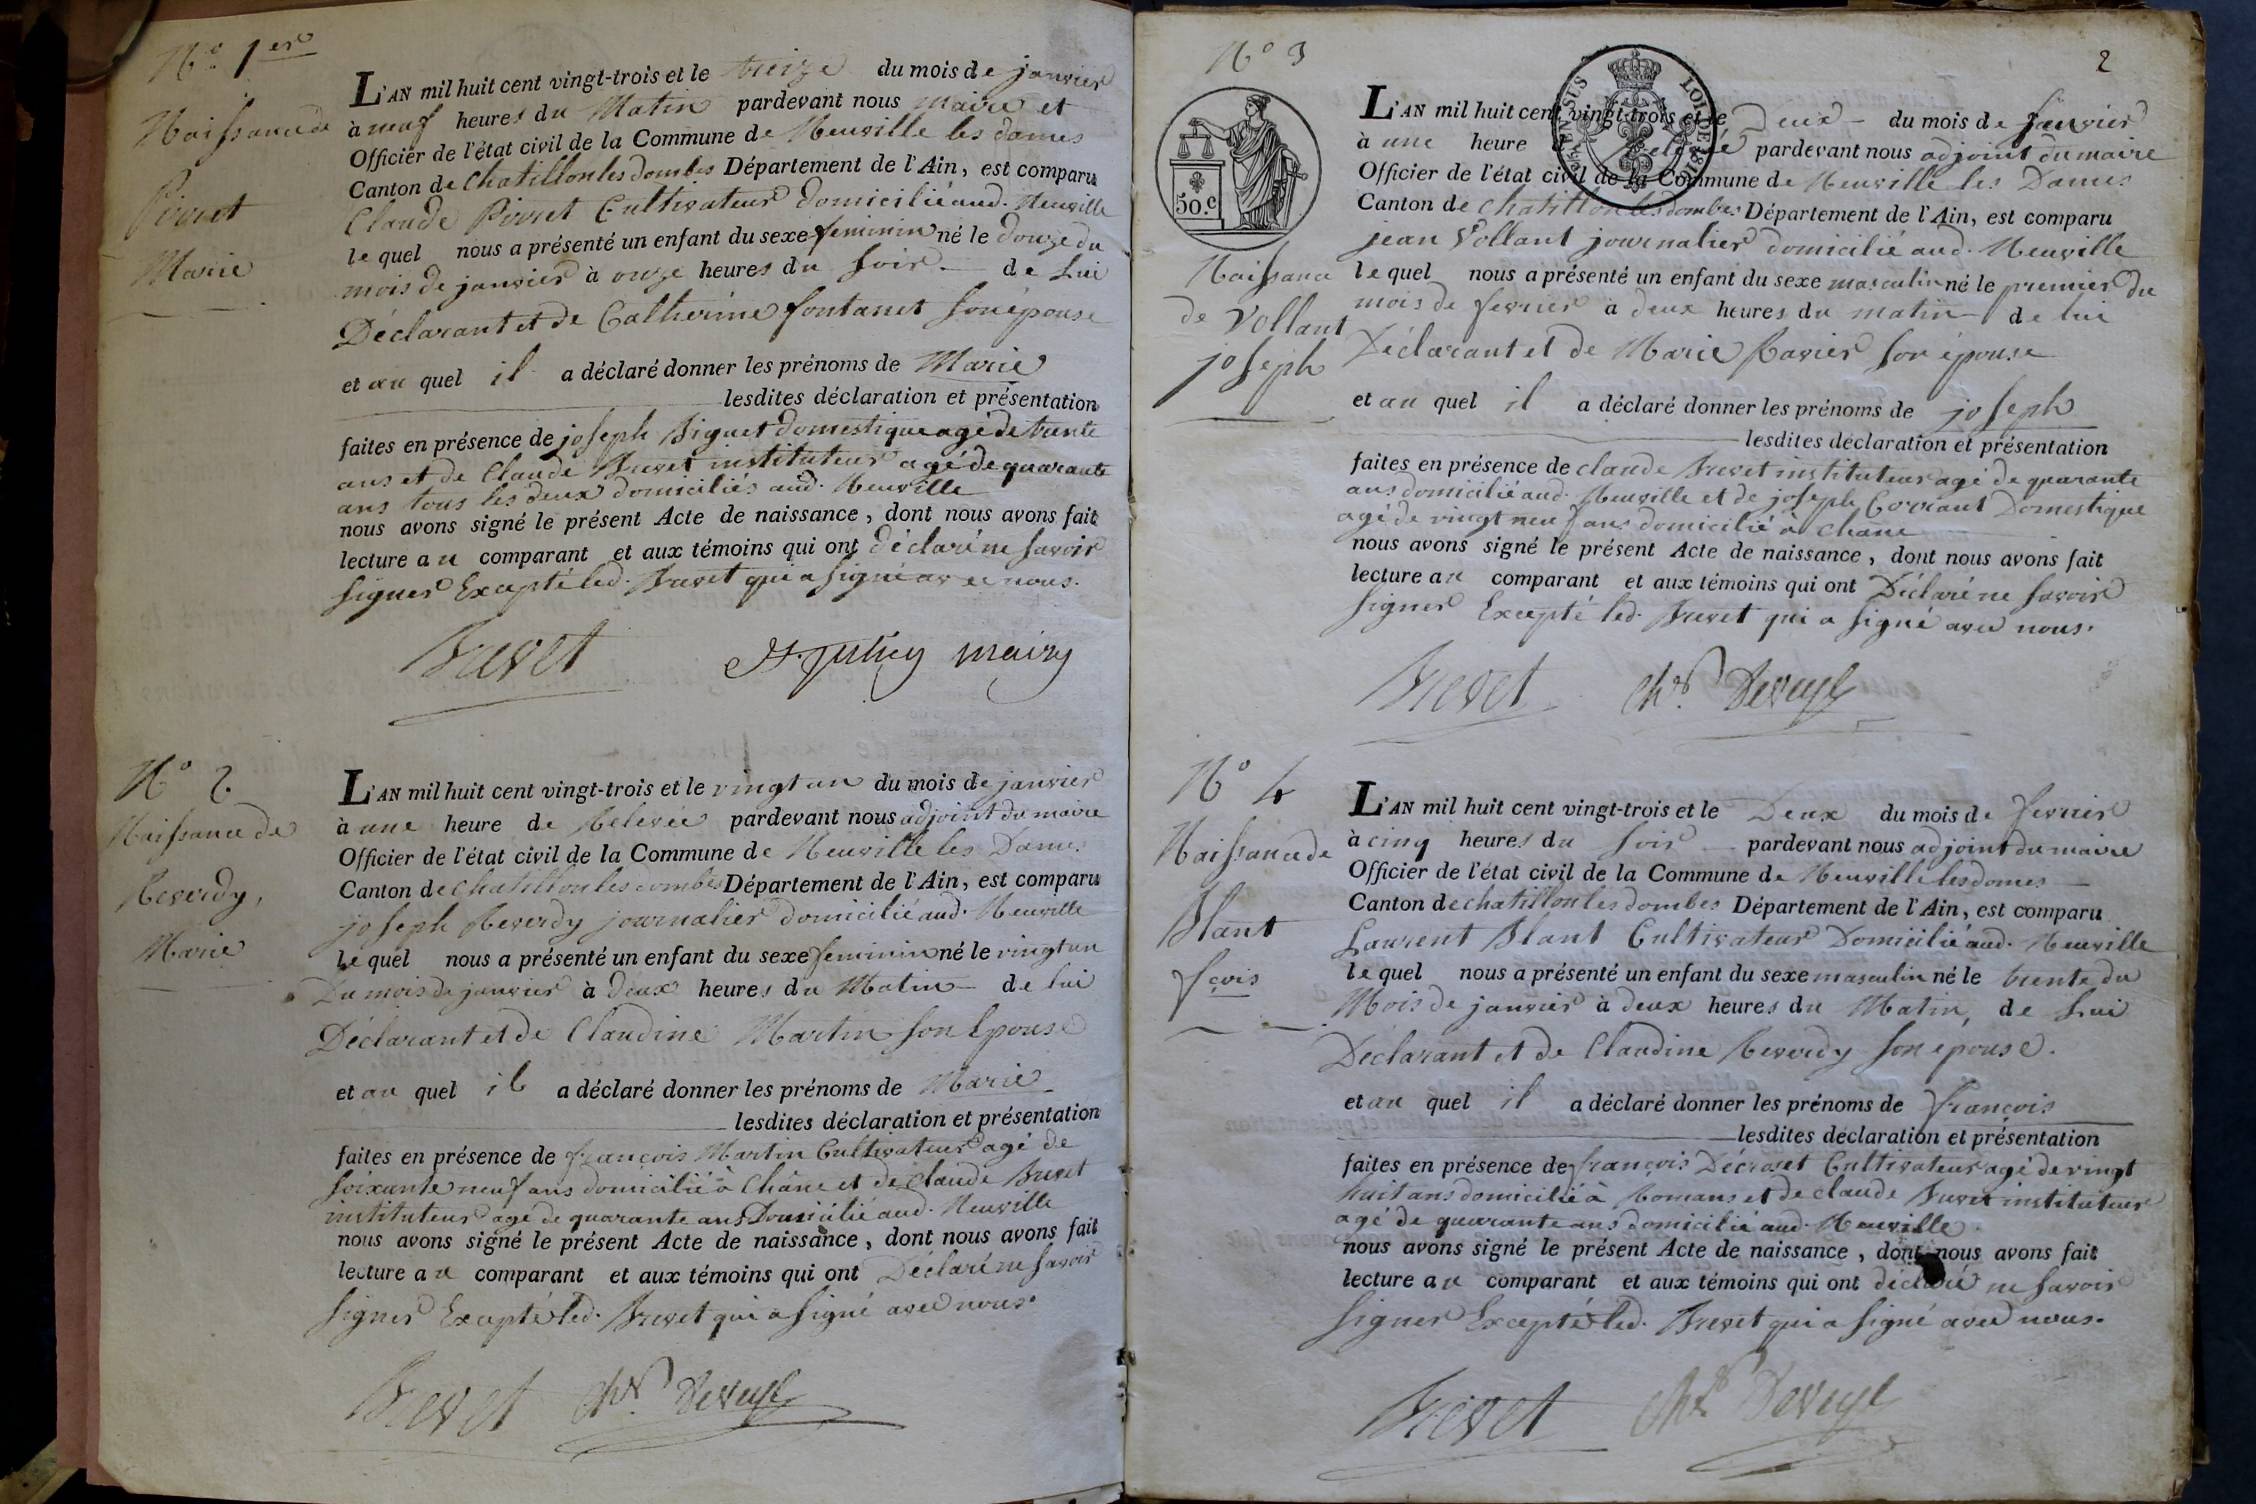 N.o 1er
Naissance de
Pivret
Marie
L'AN mil huit cent vingt-trois et le treize du mois de janvier
à neuf heures du Matin pardevant nous maire et
Officier de l'état civil de la Commune de Neuville les dames
Canton de Chatillon les dombes Département de l'Ain, est comparu
Claude Pivret Cultivateur domicilié aud. Neuville
le quel nous a présenté un enfant du sexe feminin né le douze du
mois de janvier à onze heures du soir. de Lui
Déclarant et de Catherine fontanet son épouse
et au quel il a déclaré donner les prénoms de Marie
lesdites déclaration et présentation
faites en présence de joseph Biguet domestique agé de trente
ans et de Claude Brevet instituteur agé de quarante
ans tous les deux domiciliés aud. Neuville
nous avons signé le présent Acte de naissance, dont nous avons fait
lecture au comparant et aux témoins qui ont déclaré ne savoir
signer Excepté led. Brevet qui a signé avec nous.
Brevet maire
N.o 2.
Naissance de
Reverdy,
Marie
L'AN mil huit cent vingt-trois et le vingt un du mois de janvier
à une heure de Relevée pardevant nous adjoint du maire
Officier de l'état civil de la Commune de Neuville les Dames
Canton de chatillon les dombes Département de l'Ain, est comparu
joseph Reverdy journalier domicilié aud. Neuville
le quel nous a présenté un enfant du sexe feminin né le vingt un
Du mois de janvier à deux heures du Matin de lui
Déclarant et de Claudine Martin son Epouse
et au quel il a déclaré donner les prénoms de Marie
lesdites déclaration et présentation
faites en présence de françois Martin Cultivateur agé de
soixante neuf ans domicilié à Châne et de Claude Brevet
instituteur agé de quarante ans Domicilié aud. Neuville
nous avons signé le présent Acte de naissance, dont nous avons fait
lecture au comparant et aux témoins qui ont Déclaré ne savoir
signer Excepté led. Brevet qui a signé avec nous.
Brevet
2
N.o 3
50.c
LOI DE 1816
Naissance
de Vollant
joseph
L'AN mil huit cent vingt-trois et le Deux du mois de fevrier
à une heure de Relevé pardevant nous adjoint du maire
Officier de l'état civil de la Commune de Neuville les Dames
Canton de Chatillon les dombes Département de l'Ain, est comparu
jean Vollant journalier domicilié aud. Neuville
le quel nous a présenté un enfant du sexe masculin né le premier du
mois de fevrier à deux heures du matin de lui
Déclarant et de Marie Ravier son épouse
et au quel il a déclaré donner les prénoms de joseph
lesdites déclaration et présentation
faites en présence de claude Brevet instituteur agé de quarante
ans domicilié aud. Neuville et de joseph Corriant Domestique
agé de vingt neuf ans domicilié à Chane
nous avons signé le présent Acte de naissance, dont nous avons fait
lecture au comparant et aux témoins qui ont Déclaré ne savoir
signer Excepté led. Brevet qui a signé avec nous.
Brevet
N.o 4
Naissance de
Blant
fçois
L'AN mil huit cent vingt-trois et le Deux du mois de fevrier
à cinq heures du soir pardevant nous adjoint du maire
Officier de l'état civil de la Commune de Neuville les dames
Canton de chatillon les dombes Département de l'Ain, est comparu
Laurent Blant Cultivateur Domicilié aud. Neuville
le quel nous a présenté un enfant du sexe masculin né le trente du
Mois de janvier à deux heures du Matin, de Lui
Déclarant et de Claudine Reverdy son epouse.
et au quel il a déclaré donner les prénoms de françois
lesdites déclaration et présentation
faites en présence de françois Décroset Cultivateur agé de vingt
huit ans domicilié à Romans et de claude Brevet instituteur
agé de quarante ans domicilié aud. Neuville.
nous avons signé le présent Acte de naissance, dont nous avons fait
lecture au comparant et aux témoins qui ont déclaré ne savoir
signer Excepté led. Brevet qui a signé avec nous.
Brevet